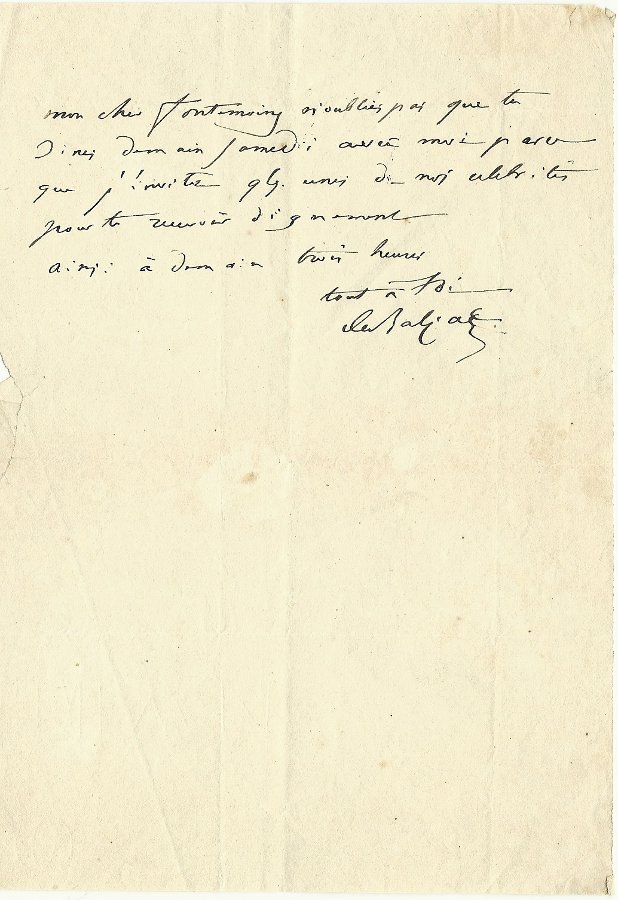 mon cher Fontemoing n'oublies pas que tu
dines demain samedi avec moi parce
que j'invite qlq. unes de nos celebrités
pour te recevoir dignement
ainsi à demain trois heures
tout à toi
de Balzac